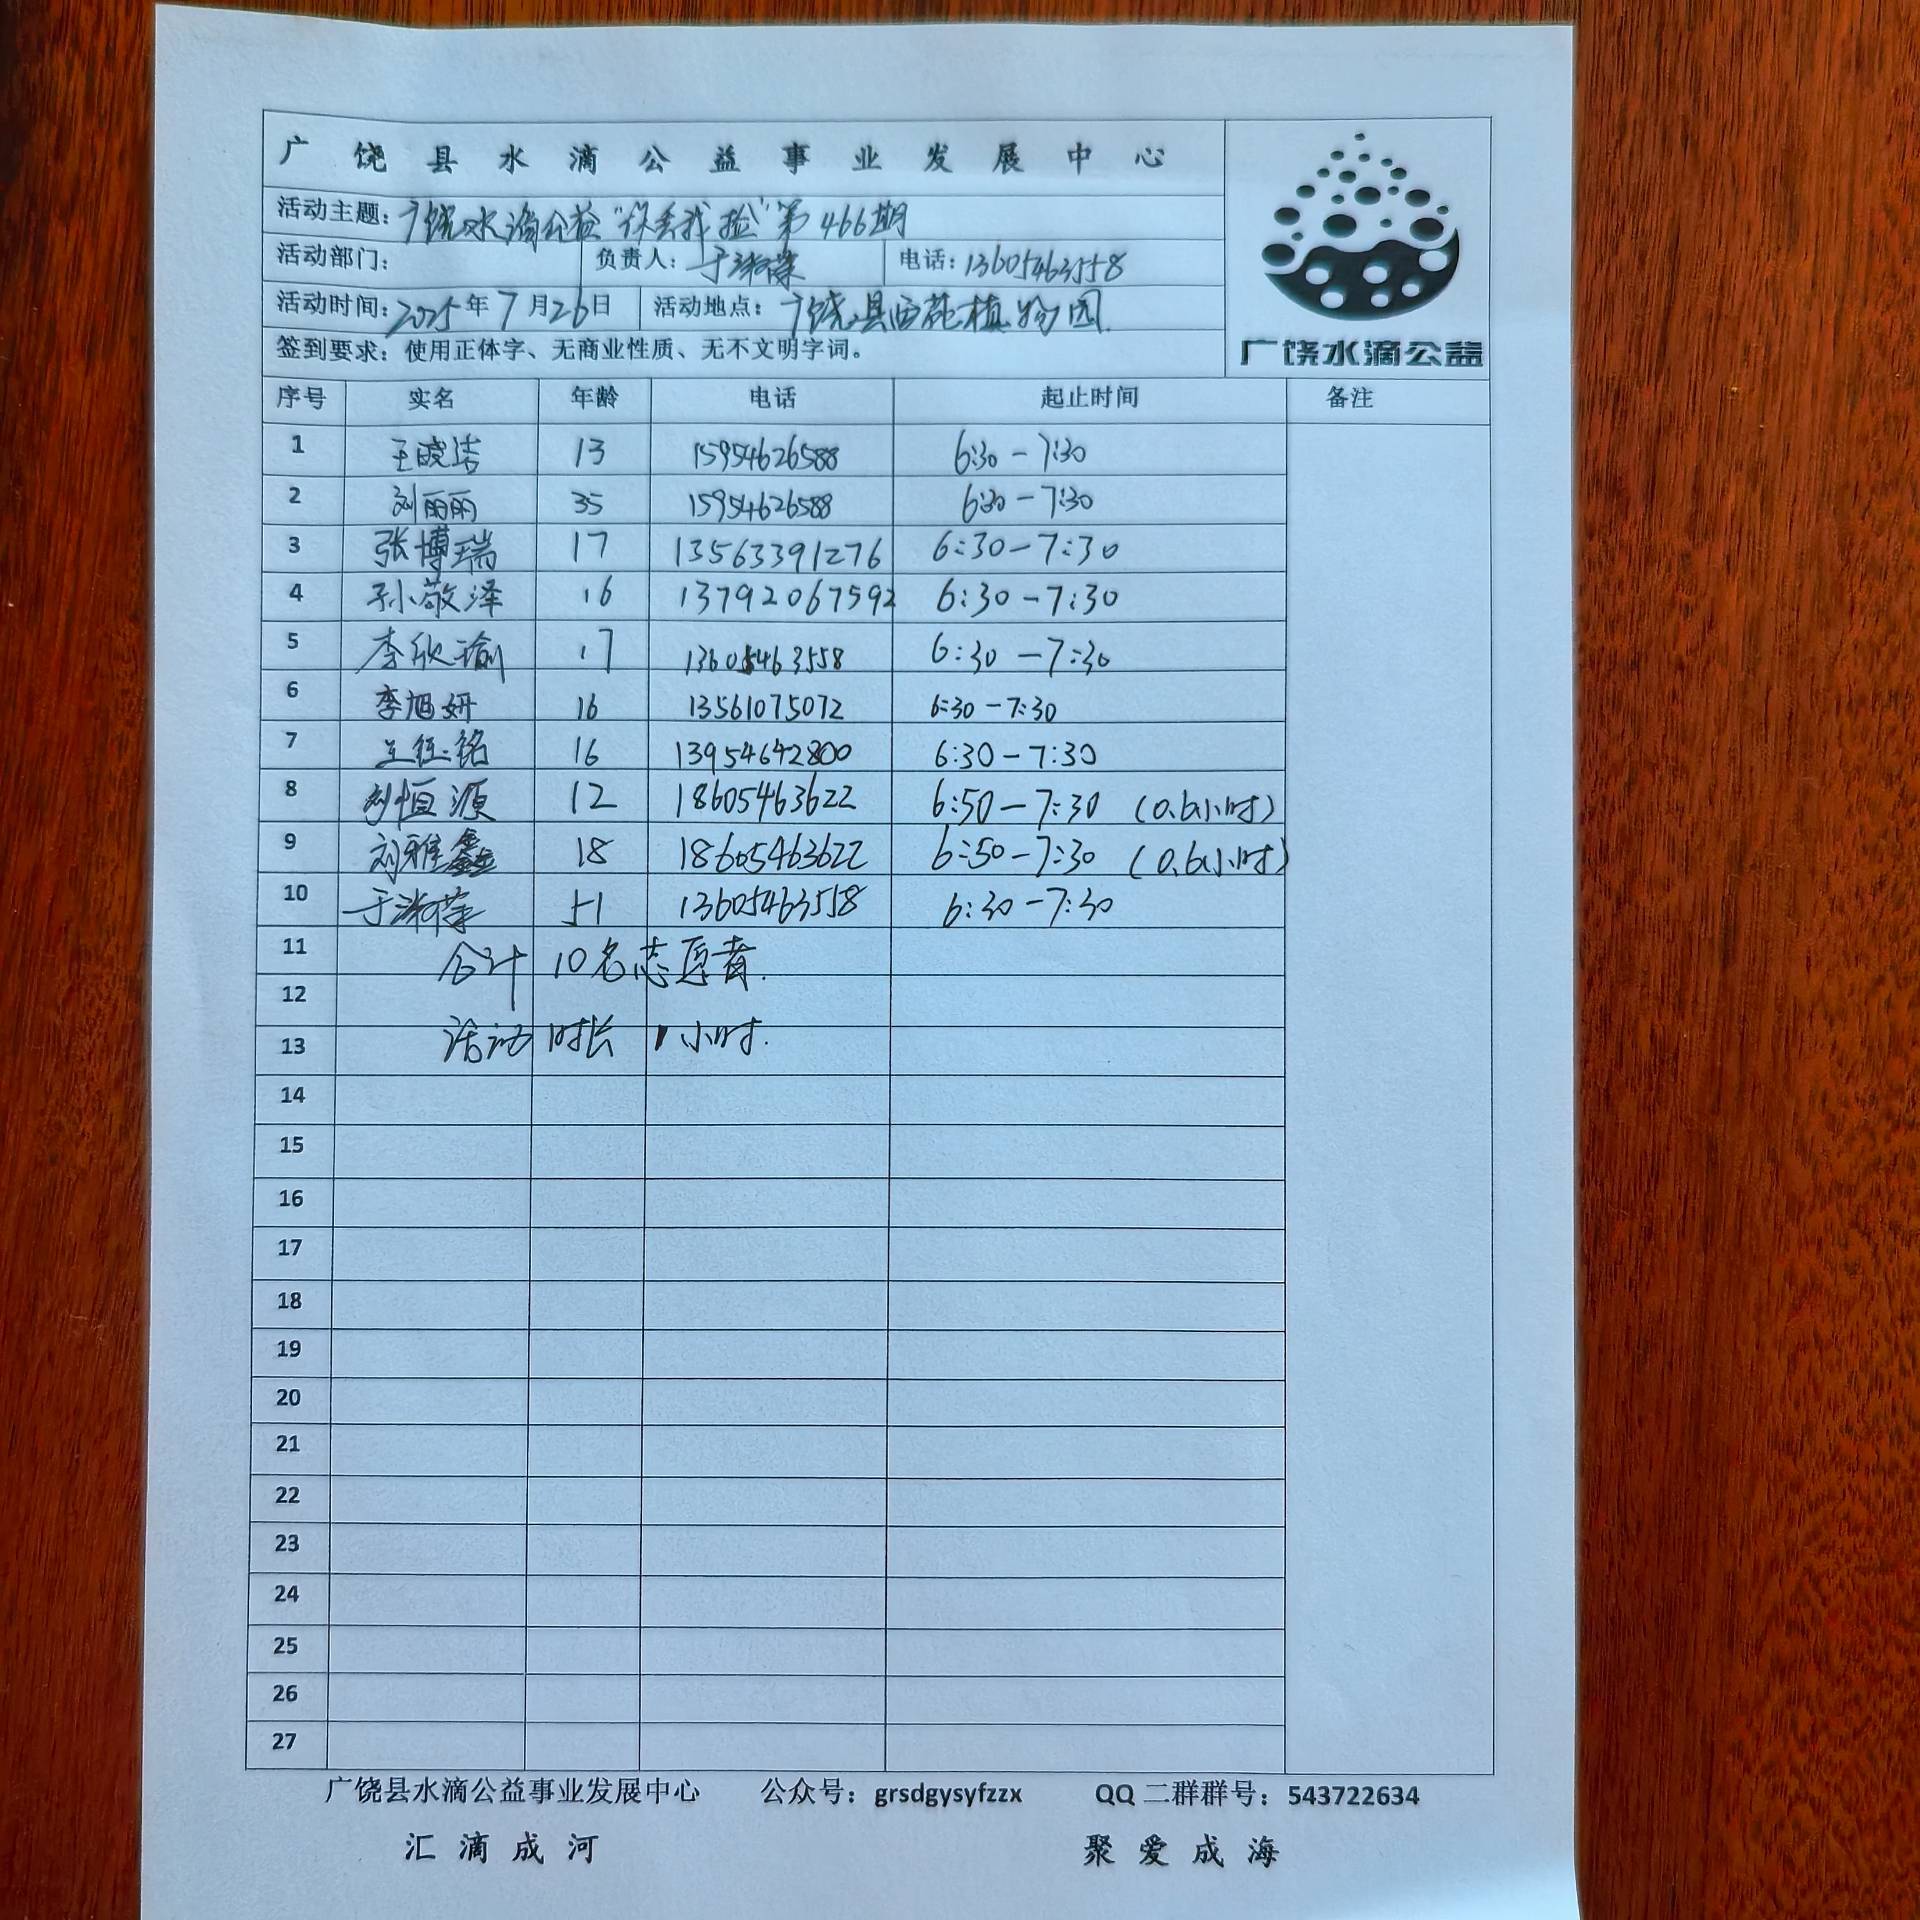 广饶县水滴公益事业发展中心
活动主题：广饶水滴公益“你丢我捡”第466期
活动部门： 负责人：于淑荣 电话：13605463558
活动时间：2025年7月26日 活动地点：广饶县西苑植物园
签到要求：使用正体字、无商业性质、无不文明字词。
广饶水滴公益
序号 实名 年龄 电话 起止时间 备注
1 王晓洁 13 15954626588 6:30-7:30
2 刘丽丽 35 15954626588 6:30-7:30
3 张博瑞 17 13563391276 6:30-7:30
4 孙敬泽 16 13792067592 6:30-7:30
5 李欣瑜 17 13605463558 6:30-7:30
6 李旭妍 16 13561075072 6:30-7:30
7 16 13954642800 6:30-7:30
8 刘恒源 12 18605463622 6:50-7:30（0.6小时）
9 刘雅鑫 18 18605463622 6:50-7:30（0.6小时）
10 于淑荣 51 13605463558 6:30-7:30
11 合计10名志愿者.
12
13 活动时长1小时.
14
15
16
17
18
19
20
21
22
23
24
25
26
27
广饶县水滴公益事业发展中心 公众号：grsdgysyfzzx QQ二群群号：543722634
汇滴成河 聚爱成海